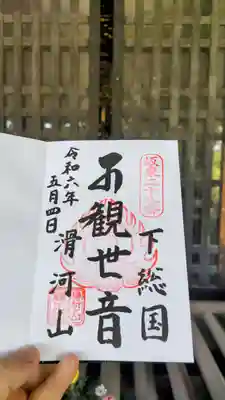 下総国
観世音
滑河山
令和六年
五月四日